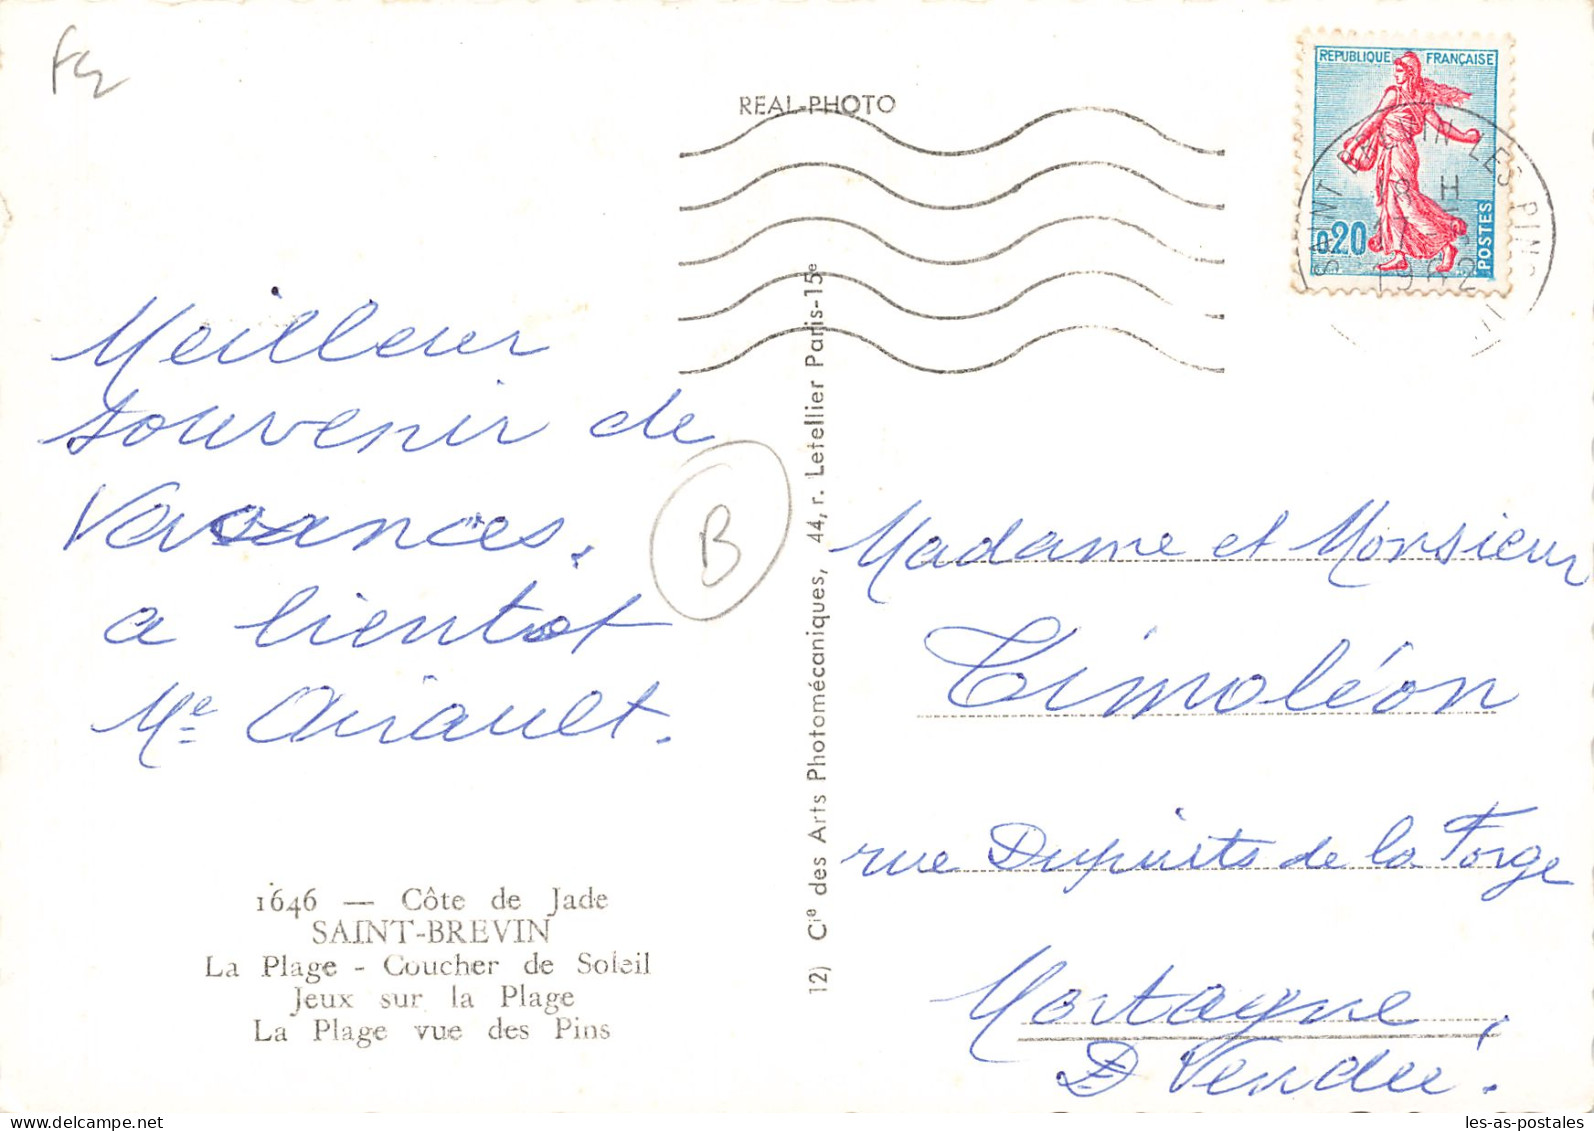 REAL-PHOTO
REPUBLIQUE FRANÇAISE
0.20
POSTES
SAINT BREVIN LES PINS
18 H
17
1962
Meilleur
souvenir de
Vacances.
a bientôt
Me Airault.
B
1646 — Côte de Jade
SAINT-BREVIN
La Plage - Coucher de Soleil
Jeux sur la Plage
La Plage vue des Pins
12) Cie des Arts Photomécaniques, 44, r. Letellier Paris-15e
Madame et Monsieur
Timoléon
rue Dupuits de la Forge
Mortagne,
D Vendée.
les-as-postales.com